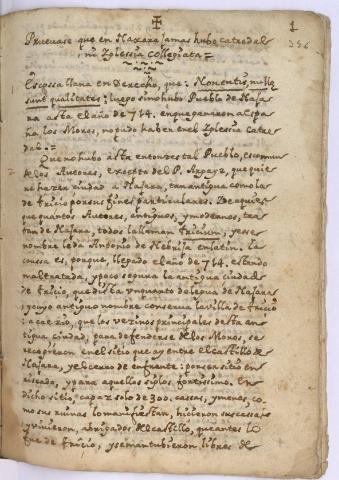 1
356
Pruevase que en Naxara jamas hubo catredal
ni Iglesia collegiata=
1 Es cossa llana en Derecho, que: Non entis, nullę
sunt qualitates: luego si no hubo Pueblo de Naja
ra asta el año de 714. en que pararon a Espa
ña los Moros, no pudo haber en el Iglesia cate
dal.=
2 Que no hubo asta entonzes tal Pueblo, es comun
de los Autores, excepto del P. que quie
re hazer ciudad a Najara, tan antigua como la
de Tricio por sus fines particulares. De aqui es
que quantos Autores, antiguos, y modernos, tra
tan de Najara, todos la llaman Tricium, y esse
nombre le da Antonio de Nebrija en latin. La
caussa es, porque, llegado el año de 714. estando
maltratada, y poco segura la antigua ciudad
de Tricio, que dista un quarto de legua de Najara
y cuyo antiguo nombre conserva la villa de Tricio
acaezio, que los vezinos principales desta an
tigua ciudad, para defenderse de los Moros, se
recogieron en el sitio que ay entre el castillo de
Najara, y el cerro de enfrente: por ser sitio en
riscado, y para aquellos siglos fortissimo. En
dicho sitio, capaz solo de 300. cassas, y menos, co
mo sus ruinas lo manifiestan, hicieron sus cassas
y vivieron, abrigados del castillo, que antes lo
fue de Tricio, y se mantubieron libres de